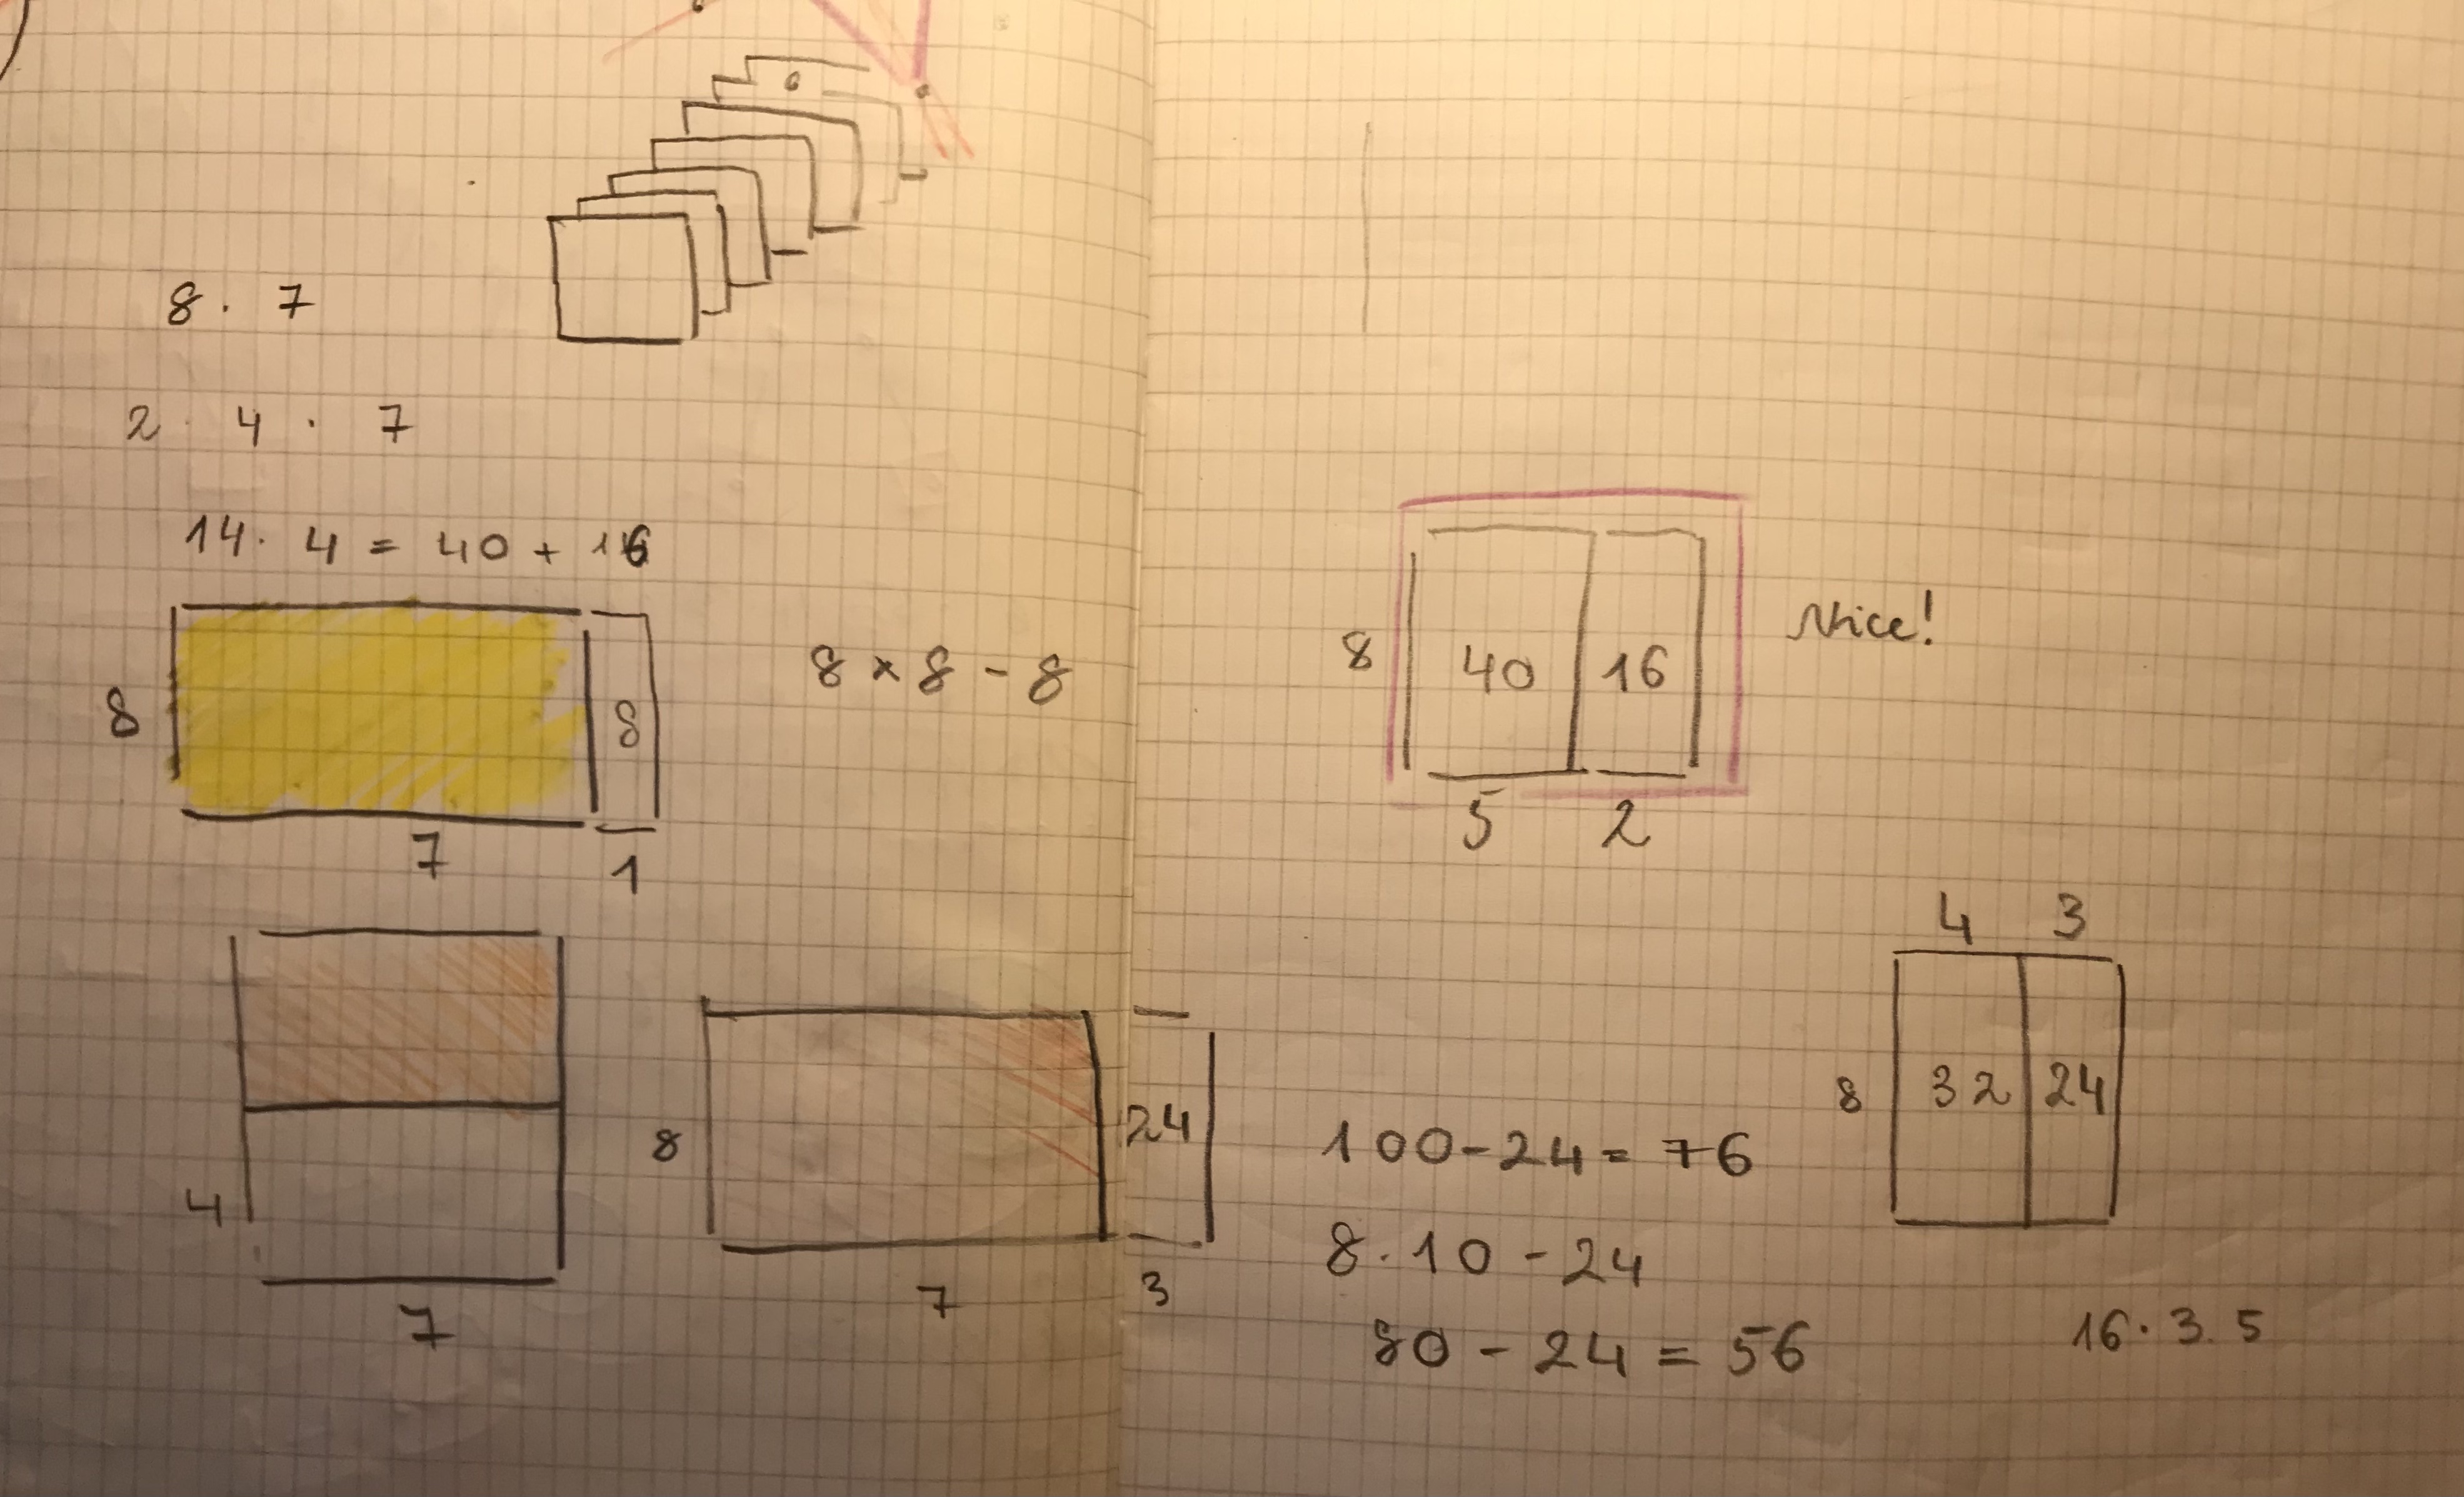 8 · 7
2 · 4 · 7
14 · 4 = 40 + 16
8
8
7
1
8 × 8 - 8
4
7
8
24
7
3
8
40
16
5
2
Nice!
4
3
8
32
24
100 - 24 = 76
8 · 10 - 24
80 - 24 = 56
16 · 3.5